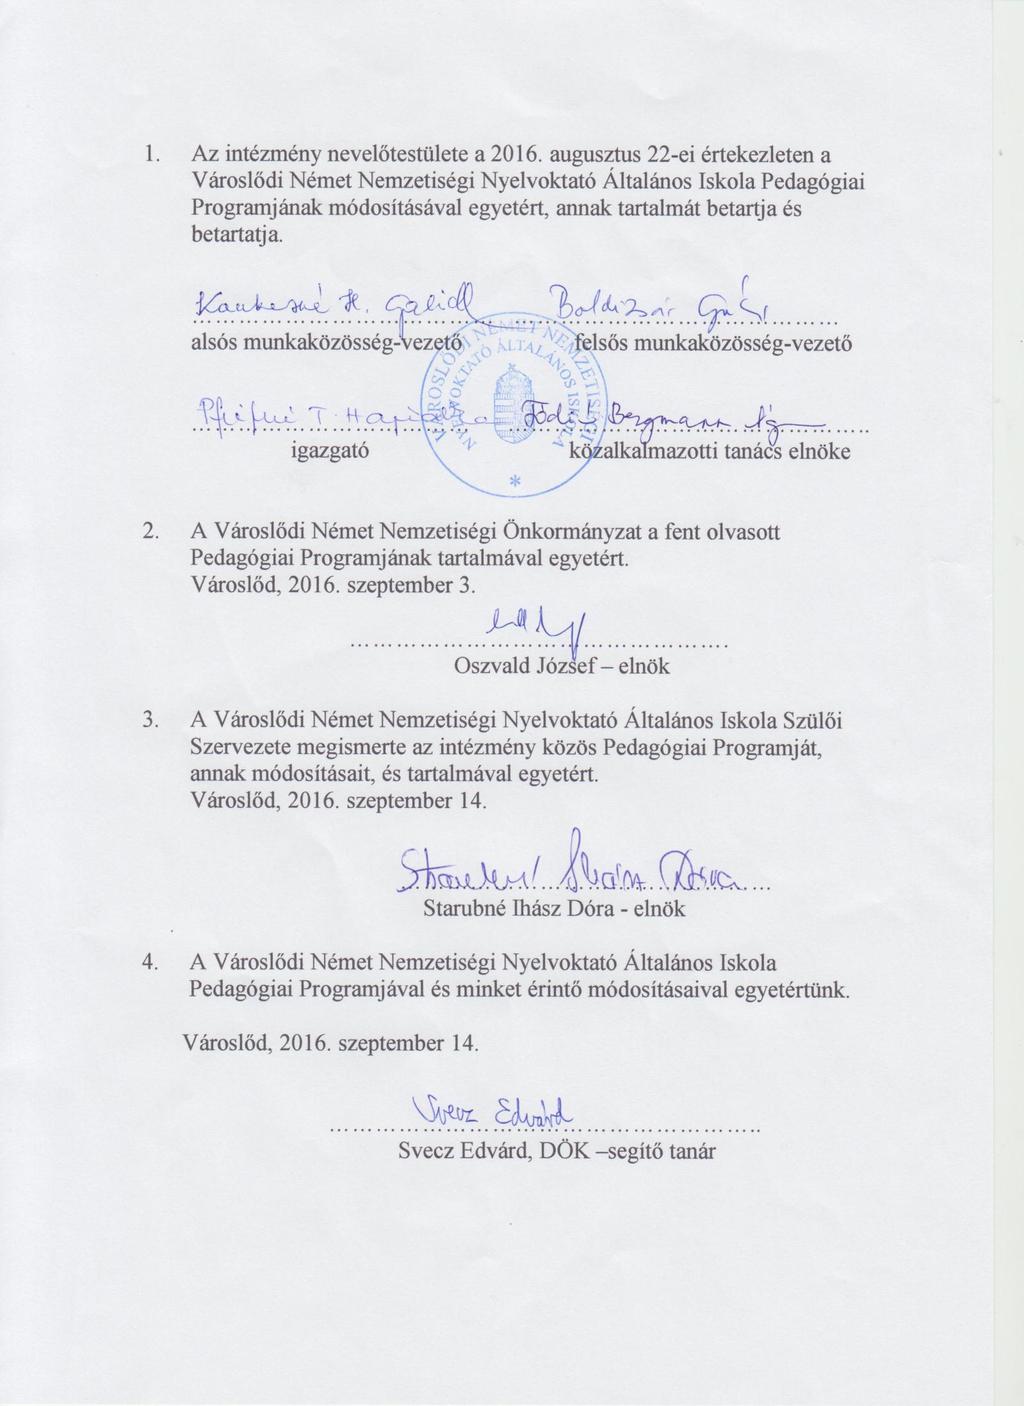 1. Az intézmény nevelőtestülete a 2016. augusztus 22-ei értekezleten a
Városlődi Német Nemzetiségi Nyelvoktató Általános Iskola Pedagógiai
Programjának módosításával egyetért, annak tartalmát betartja és
betartatja.
alsós munkaközösség-vezető felsős munkaközösség-vezető
VÁROSLŐDI NÉMET NEMZETISÉGI
NYELVOKTATÓ ÁLTALÁNOS ISKOLA
*
igazgató közalkalmazotti tanács elnöke
2. A Városlődi Német Nemzetiségi Önkormányzat a fent olvasott
Pedagógiai Programjának tartalmával egyetért.
Városlőd, 2016. szeptember 3.
Oszvald József – elnök
3. A Városlődi Német Nemzetiségi Nyelvoktató Általános Iskola Szülői
Szervezete megismerte az intézmény közös Pedagógiai Programját,
annak módosításait, és tartalmával egyetért.
Városlőd, 2016. szeptember 14.
Starubné Ihász Dóra
Starubné Ihász Dóra - elnök
4. A Városlődi Német Nemzetiségi Nyelvoktató Általános Iskola
Pedagógiai Programjával és minket érintő módosításaival egyetértünk.
Városlőd, 2016. szeptember 14.
Svecz Edvárd
Svecz Edvárd, DÖK –segítő tanár